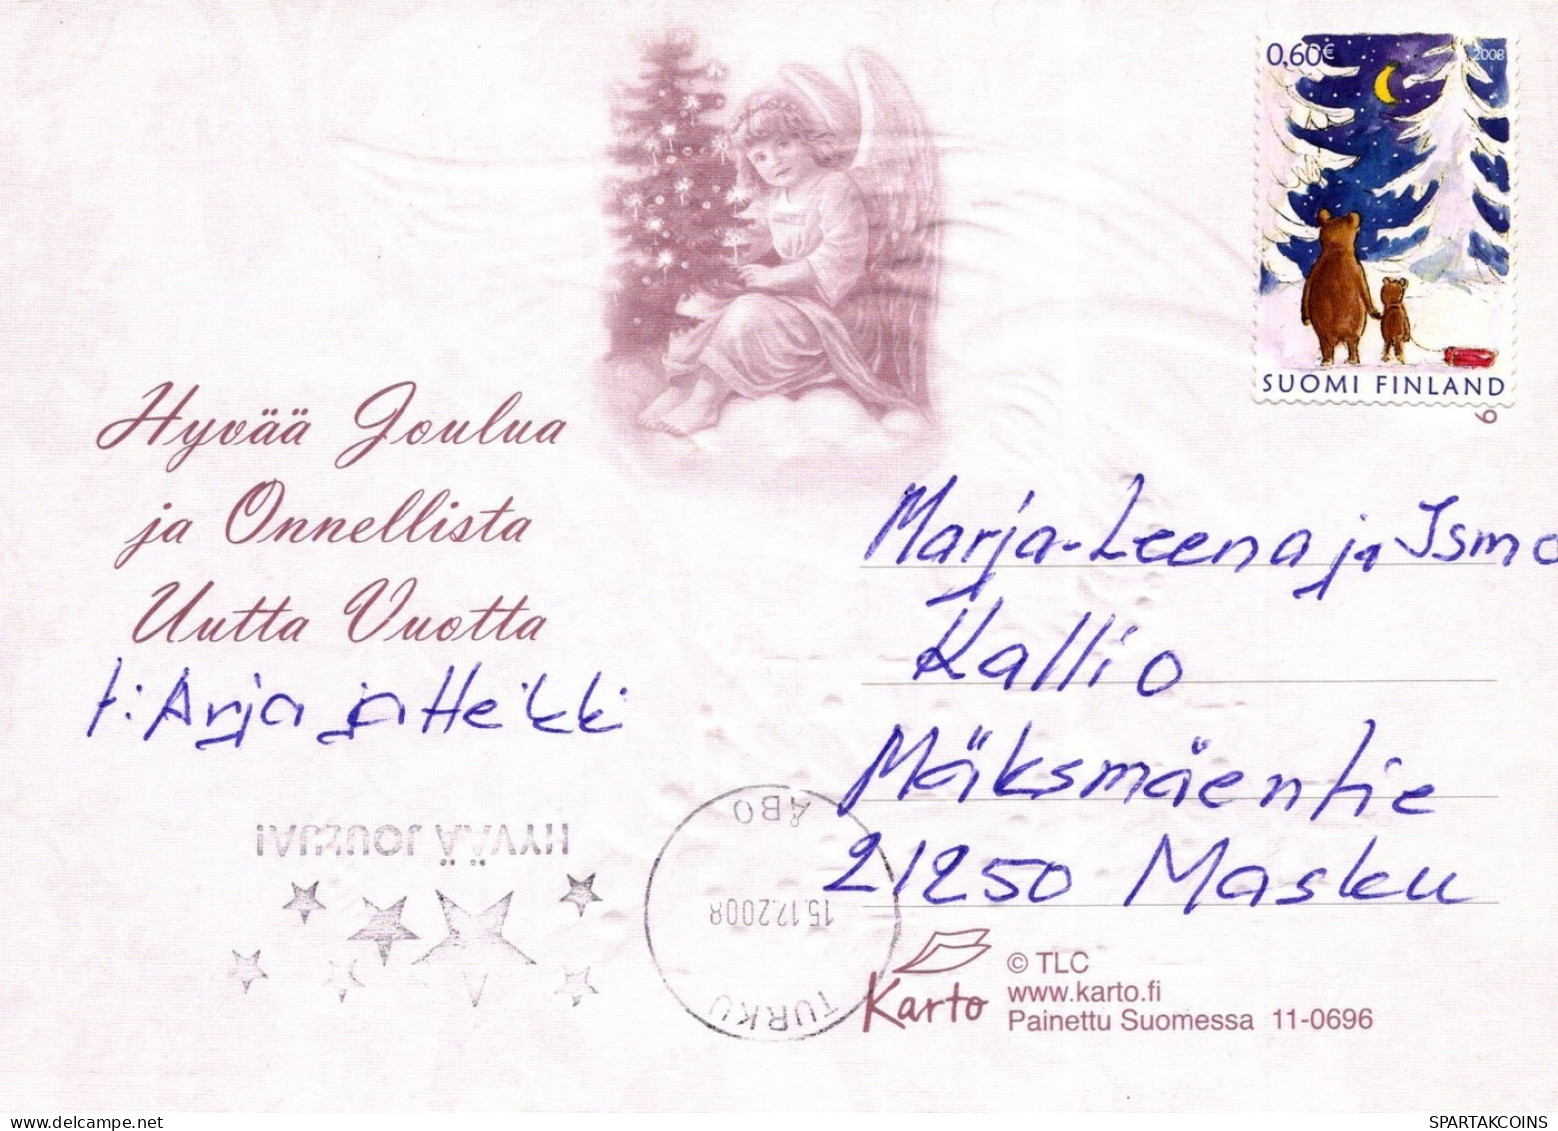 0,60€ 2008
SUOMI FINLAND
6
Hyvää Joulua
ja Onnellista
Uutta Vuotta
t: Arja ja Heikki
Marja-Leena ja Ismo
Kallio
Mäksmäentie
21250 Masku
HYVÄÄ JOULUA!
ÅBO
15.12.2008
TURKU
Karto
© TLC
www.karto.fi
Painettu Suomessa 11-0696
delcampe.net
SPARTAKCOINS